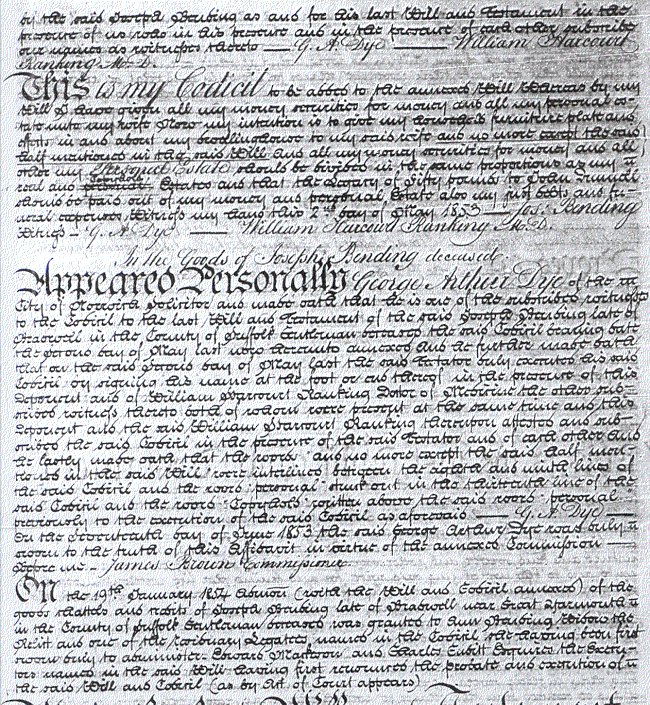 by the said Joseph Bending as and for his last Will and Testament in the
presence of us who in his presence and in the presence of each other subscribe
our names as witnesses thereto — G. A. Dye — William Harcourt
Ranking M. D.
This is my Codicil to be added to the annexed Will Whereas by my
Will I have given all my money securities for money and all my personal es-
tate unto my wife Now my intention is to give my household furniture plate and
effects in and about my dwellinghouse to my said wife and no more except the said
half mentioned in the said Will and all my money securities for money and all
other my Personal Estate should be divided in the same proportions as my
real and Copyhold personal Estates and that the Legacy of Fifty pounds to John
should be paid out of my money and personal Estate also my just debts and fu-
neral expenses Witness my hand this 2nd day of May 1853 — Jos. Bending
Witness — G. A. Dye — William Harcourt Ranking M. D.
In the Goods of Joseph Bending deceased.
Appeared Personally George Arthur Dye of the
City of Norwich Solicitor and made oath that he is one of the subscribed witnesses
to the Codicil to the last Will and Testament of the said Joseph Bending late of
Bradwell in the County of Suffolk Gentleman deceased the said Codicil bearing date
the second day of May last now hereunto annexed And he further made oath
that on the said second day of May last the said Testator duly executed his said
Codicil by signing his name at the foot or end thereof in the presence of this
Deponent and of William Harcourt Ranking Doctor of Medicine the other sub-
scribed witness thereto both of whom were present at the same time and this
Deponent and the said William Harcourt Ranking thereupon attested and sub-
scribed the said Codicil in the presence of the said Testator and of each other And
he lastly made oath that the words "and no more except the said half men-
tioned in the said Will" were interlined between the eighth and ninth lines of
the said Codicil and the word "personal" struck out in the thirteenth line of the
said Codicil and the word "Copyhold" written above the said word "personal"
previously to the execution of the said Codicil as aforesaid — G. A. Dye —
On the seventeenth day of June 1853 the said George Arthur Dye was duly
sworn to the truth of this Affidavit in virtue of the annexed Commission —
Before me - James Brown Commissioner
On the 19th January 1854 Admon (with the Will and Codicil annexed) of the
goods chattels and credits of Joseph Bending late of Bradwell near Great Yarmouth
in the County of Suffolk Gentleman deceased was granted to Ann Bending Widow the
Relict and one of the residuary Legatees named in the Codicil she having been first
sworn duly to administer. Edward and Charles Cubitt Esquires the Execu-
tors named in the said Will having first renounced the probate and execution of
the said Will and Codicil (as by Act of Court appears)